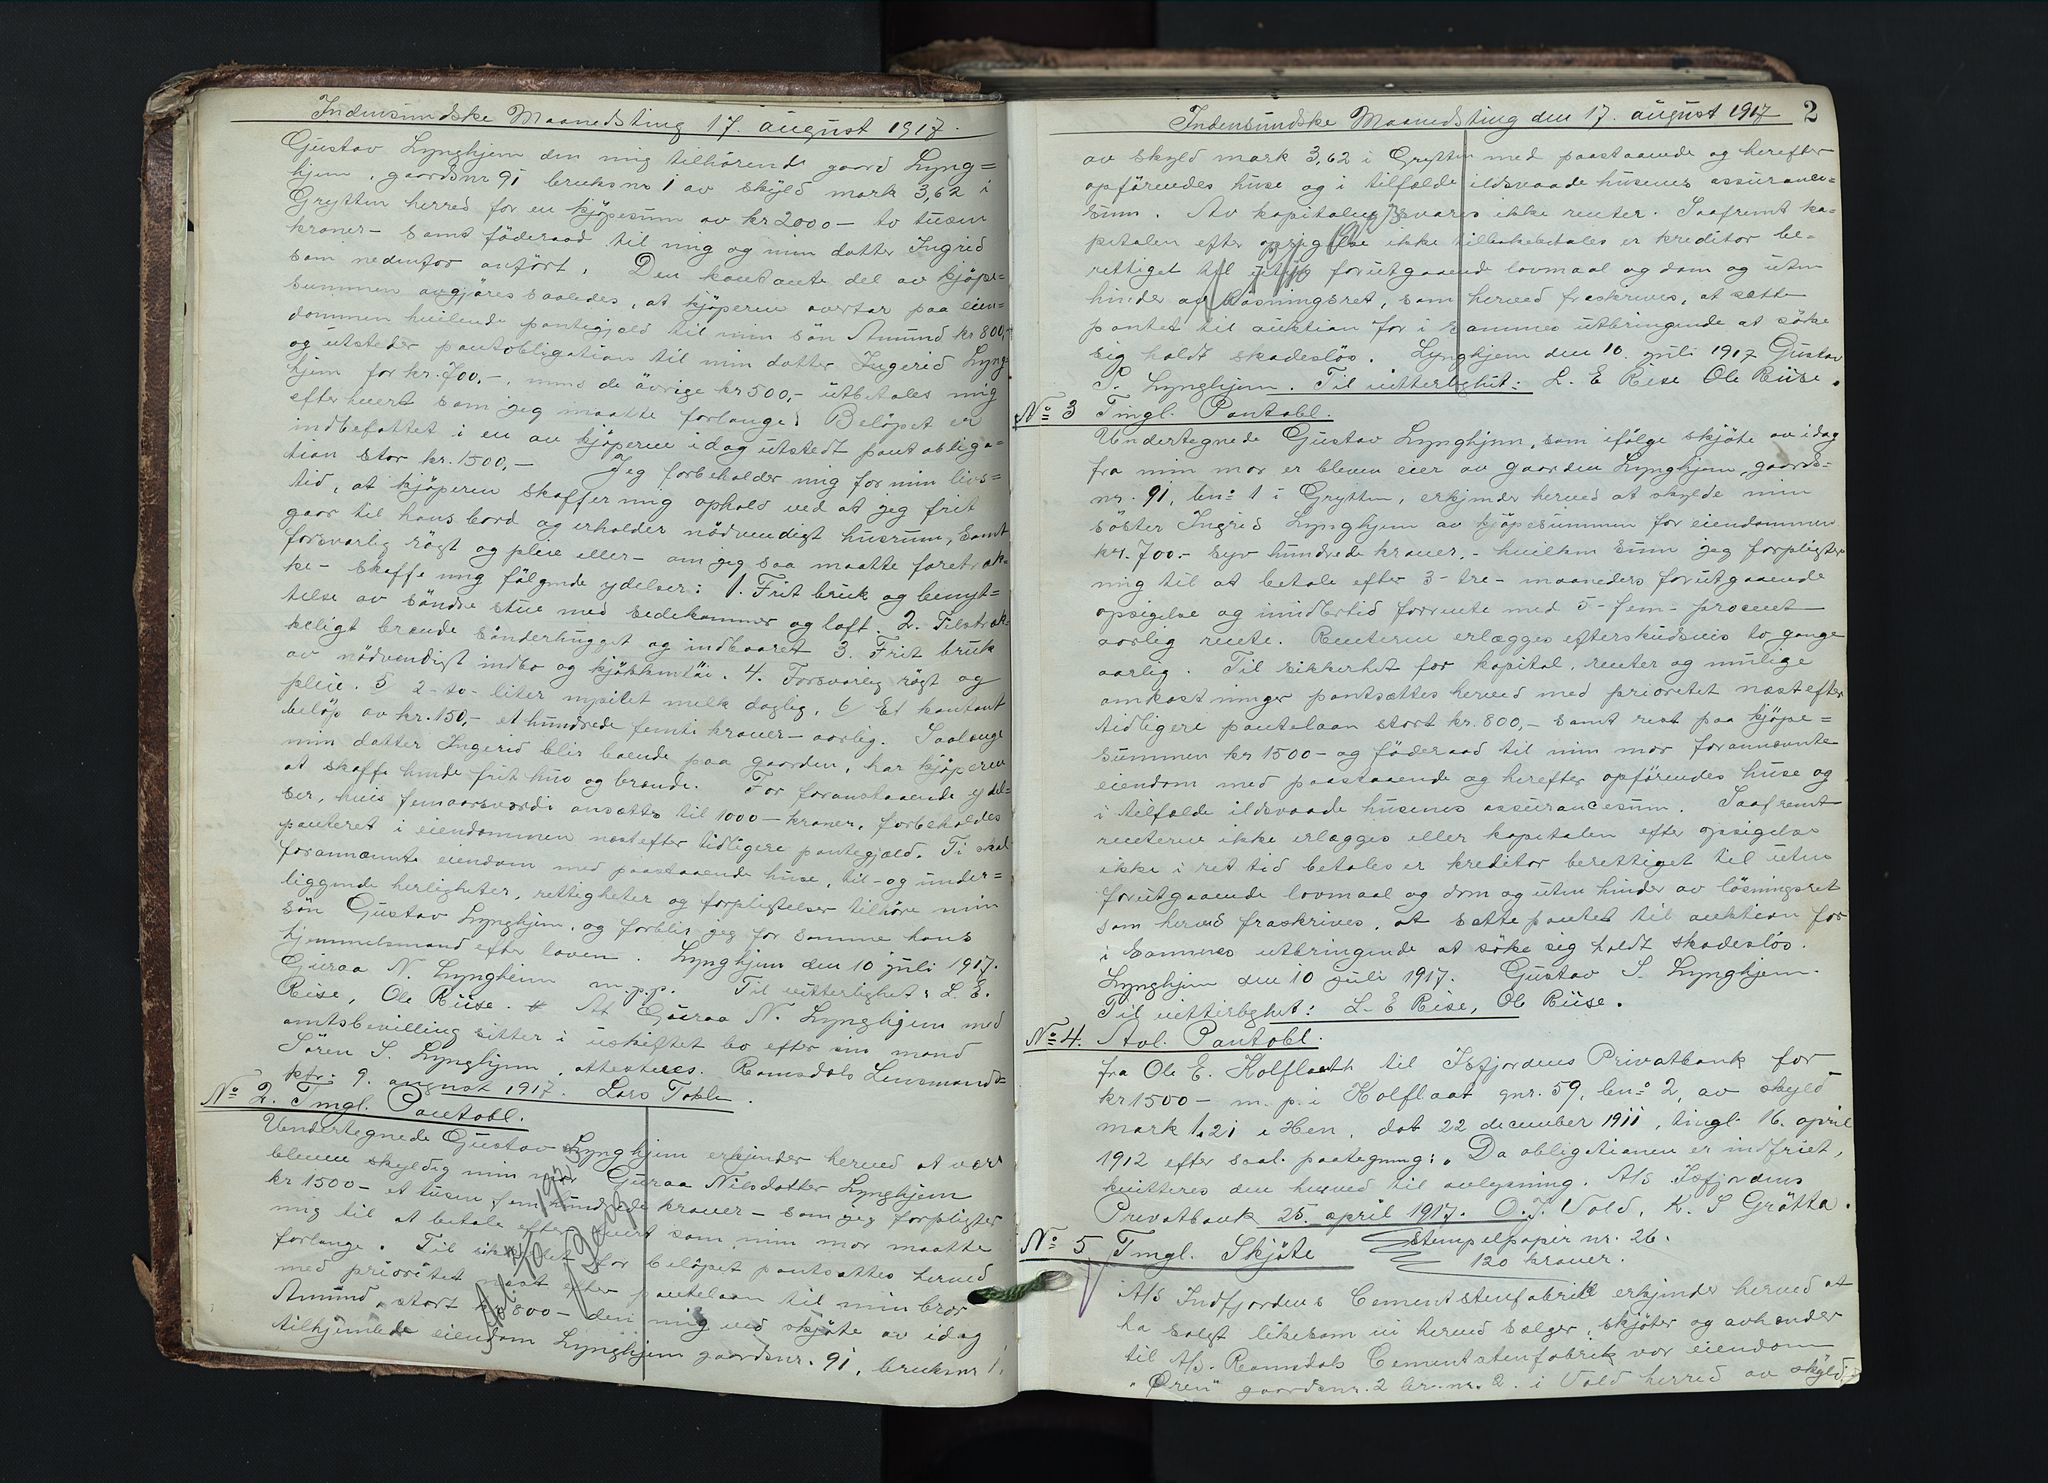 Indensundske Maanedsting 17. august 1917.
Gustav Lynghjem den mig tilhörende gaard Lyng=
hjem, gaardsnr 91 bruksnr 1 av skyld mark 3,62 i
Grytten herred for en kjöpesum av kr 2000 - to tusen
kroner - samt föderaad til mig og min datter Ingrid
som nedenfor anfört. Den kontante del av kjöpe-
summen avgjöres saaledes, at kjöperen overtar paa eien-
dommen heilende pantegjæld til min sön Amund kr 800,-
og utsteder pantobligation til min datter Ingerid Lyng-
hjem for kr. 700,-, mens de övrige kr 500,- utbetales mig
efterhvert som jeg maatte forlange. Belöpet er
indbefattet i en av kjöperen idag utstedt pantobliga-
tion stor kr. 1500,- Jeg forbeholder mig for min livs-
tid, at kjöperen skaffer mig ophold ved at jeg frit
gaar til hans bord og erholder nödvendigt husrum, samt
forsvarlig rögt og pleie eller - om jeg saa maatte foretræk-
ke - skaffe mig fölgende ydelser: 1. Frit bruk og benyt-
telse av söndre stue med sedekammer og loft. 2. Tilstræk-
keligt brænde sönderhugget og indbaaret 3. Frit bruk
av nödvendigt indbo og kjökkentöi. 4. Forsvarlig rögt og
pleie. 5 2 - to - liter nysilet melk daglig, 6/ Et kontant
belöp av kr. 150,- et hundrede femti kroner - aarlig. Saalænge
min datter Ingerid blir boende paa gaarden, har kjöperen
at skaffe hende frit hus og brænde. For foranstaaende ydel-
ser, hvis femaarsværdi ansættes til 1000 - kroner, forbeholdes
panteret i eiendommen næstefter tidligere pantegjæld. Ti skal
forannævnte eiendom med paastaaende huse, til- og under-
liggende herligheter, rettigheter og forpligtelser tilhöre min
sön Gustav Lynghjem, og forblir jeg for samme hans
hjemmelsmand efter loven. Lynghjem den 10 juli 1917.
Guraa N. Lynghem m.p.p. Til vitterlighet: L. E.
Riise, Ole Riise. At Guraa N. Lynghjem med
amtsbevilling sitter i uskiftet bo efter sin mand
Sören S. Lynghjem, attesteres. Romsdals Lensmands-
ktr: 9. august 1917. Lars Tokle.
No 2. Tingl. Pantobl.
Undertegnede Gustav Lynghjem erkjender herved at være
bleven skyldig min mor Guraa Nilsdatter Lynghjem
kr 1500 - et tusen fem hundrede kroner - som jeg forpligter
mig til at betale efterhvert som min mor maatte
forlange. Til sikkerhet for belöpet pantsættes herved
med prioritet næst efter pantelaan til min bror
Amund, stort kr 800 - den mig ved skjöte av idag
tilhjemlede eiendom Lynghjem gaardsnr. 91, bruksnr 1,
Indensundske Maanedsting den 17. august 1917 2
av skyld mark 3,62 i Grytten med paastaaende og herefter
opförendes huse og i tilfælde ildsvaade husenes assurance-
sum. Av kapitalen svares ikke renter. Saafremt ka-
pitalen efter opsigelse ikke tilbakebetales er kreditor be-
rettiget til uten forutgaaende lovmaal og dom og uten
hinder av lösningsret, som herved fraskrives, at sætte
pantet til auktion for i sammes utbringende at söke
sig holdt skadeslös. Lynghjem den 10. juli 1917 Gustav
S. Lynghjem. Til vitterlighet: L. E Riise Ole Riise.
No 3 Tingl. Pantobl.
Undertegnede Gustav Lynghjem, som ifölge skjöte av idag
fra min mor er bleven eier av gaarden Lynghjem, gaards-
nr. 91, bno 1 i Grytten, erkjender herved at skylde min
söster Ingrid Lynghjem av kjöpesummen for eiendommen
kr. 700.- syv hundrede kroner, - hvilken sum jeg forpligter
mig til at betale efter 3 - tre - maaneders forutgaaende
opsigelse og imidlertid forrente med 5 - fem - procent
aarlig rente. Renterne erlægges efterskudsvis to gange
aarlig. Til sikkerhet for kapital, renter og mulige
omkostninger pantsættes herved med prioritet næstefter
tidligere pantelaan stort kr. 800,- samt rest paa kjöpe=
summen kr 1500 - og föderaad til min mor forannævnte
eiendom med paastaaende og herefter opförendes huse og
i tilfælde ildsvaade husenes assurancesum. Saafremt
renterne ikke erlægges eller kapitalen efter opsigelse
ikke i ret tid betales er kreditor berettiget til uten
forutgaaende lovmaal og dom og uten hinder av lösningsret
som herved fraskrives, at sætte pantet til auktion for
i sammes utbringende at söke sig holdt skadeslös.
Lynghjem den 10 juli 1917. Gustav S. Lynghjem.
Til vitterlighet: L. E Riise, Ole Riise.
No 4. Avl. Pantobl.
fra Ole E. Kolflaath til Isfjordens Privatbank for
kr 1500 - m. p. i Kolflaat gnr. 59, bno 2, av skyld
mark 1.21 i Hen, dat 22 december 1911, tingl. 16. april
1912 efter saal. paategning: "Da obligationen er indfriet,
kvitteres den herved til avlysning. A/s Isfjordens
Privatbank 25. april 1917. O. J. Vold, K. S Grötta.
No 5 Tingl. Skjöte Stempelpapir nr. 26.
120 kroner.
A/s Indfjordens Cementstenfabrik erkjender herved at
ha solgt likesom vi herved sælger, skjöter og avhænder
til A/s. Romsdals Cementstenfabrik vor eiendom
"Ören" gaardsnr. 2 br. nr. 2. i Vold herred av skyld